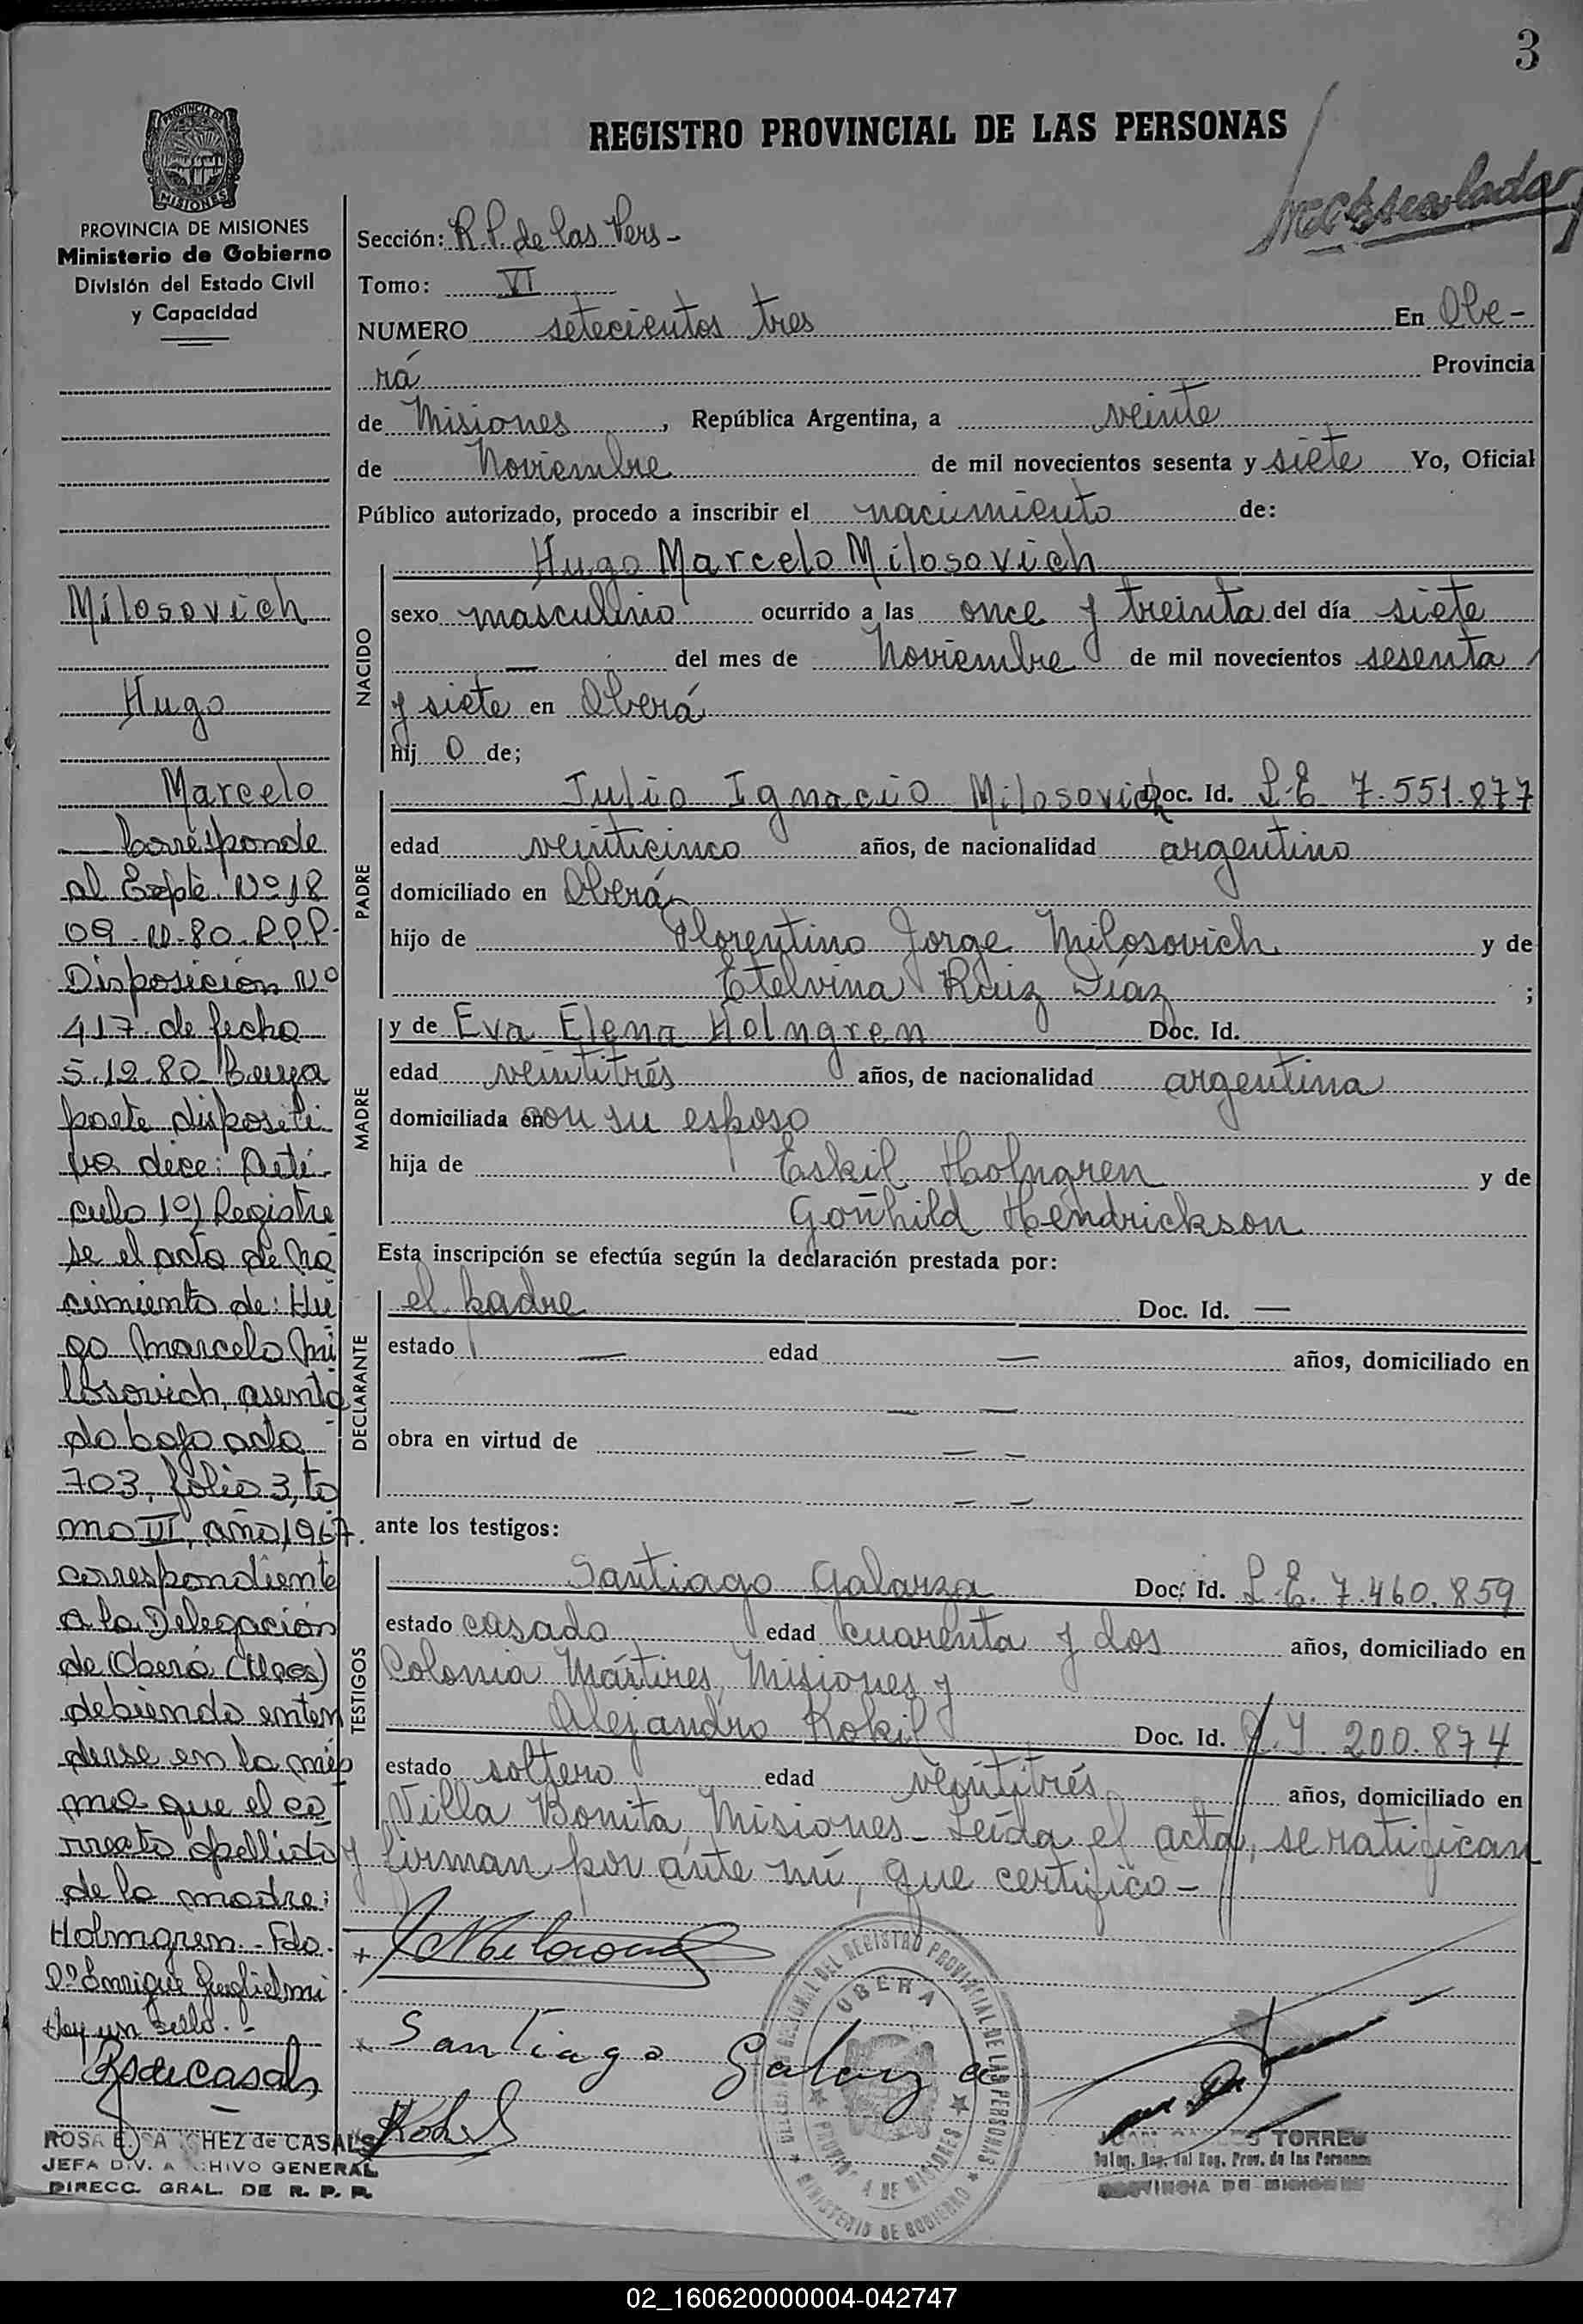 3
REGISTRO PROVINCIAL DE LAS PERSONAS
PROVINCIA DE
MISIONES
PROVINCIA DE MISIONES
Ministerio de Gobierno
División del Estado Civil
y Capacidad
Milosovich
Hugo
Marcelo
Corresponde
al Expte. Nº 18
09
Disposición Nº
417 de fecha
5.12.80 Cuya
parte dispositi
va dice: Artí-
culo 1º) Registre
se el acta de Na
cimiento de: Hu
go Marcelo Mi
losovich, asenta
do bajo acta
703, folio 3, to
mo III, año 1967.
correspondiente
a la Delegación
de Oberá (Mnes)
debiendo enten
derse en la mis
ma que el co
rrecto apellido
de la madre:
Holmgren - Fdo.
Dº Enrique Guglielmi
Hay un sello.-
ROSA E. SANCHEZ de CASALS
JEFA DIV. ARCHIVO GENERAL
DIRECC. GRAL. DE R. P. P.
Sección: R.P. de las Pers-
Tomo: VI
NUMERO setecientos tres En Obe-
rá Provincia
de Misiones, República Argentina, a veinte
de Noviembre de mil novecientos sesenta y siete Yo, Oficial
Público autorizado, procedo a inscribir el nacimiento de:
NACIDO
Hugo Marcelo Milosovich
sexo masculino ocurrido a las once y treinta del día siete
— del mes de Noviembre de mil novecientos sesenta
y siete en Oberá
hij o de;
PADRE
Julio Ignacio Milosovich Doc. Id. L.E. 7.551.877
edad veinticinco años, de nacionalidad argentino
domiciliado en Oberá
hijo de Florentino Jorge Milosovich y de
Etelvina Ruiz Díaz ;
MADRE
y de Eva Elena Holngren Doc. Id.
edad veintitrés años, de nacionalidad argentina
domiciliada en con su esposo
hija de Eskil Holngren y de
Gonhild Hendrickson
Esta inscripción se efectúa según la declaración prestada por:
DECLARANTE
el padre Doc. Id. —
estado — edad — años, domiciliado en
— —
obra en virtud de — —
— —
ante los testigos:
TESTIGOS
Santiago Galarza Doc. Id. L.E. 7.460.859
estado casado edad cuarenta y dos años, domiciliado en
Colonia Mártires, Misiones y
Alejandro Kokil Doc. Id. 200.874
estado soltero edad veintitrés años, domiciliado en
Villa Bonita, Misiones - Leída el acta, se ratifican
y firman por ante mí, que certifico -
Santiago Galarza
OBERA
MINISTERIO DE GOBIERNO
TORRES
Deleg. Reg. del Reg. Prov. de las Personas
PROVINCIA DE MISIONES
02_160620000004-042747